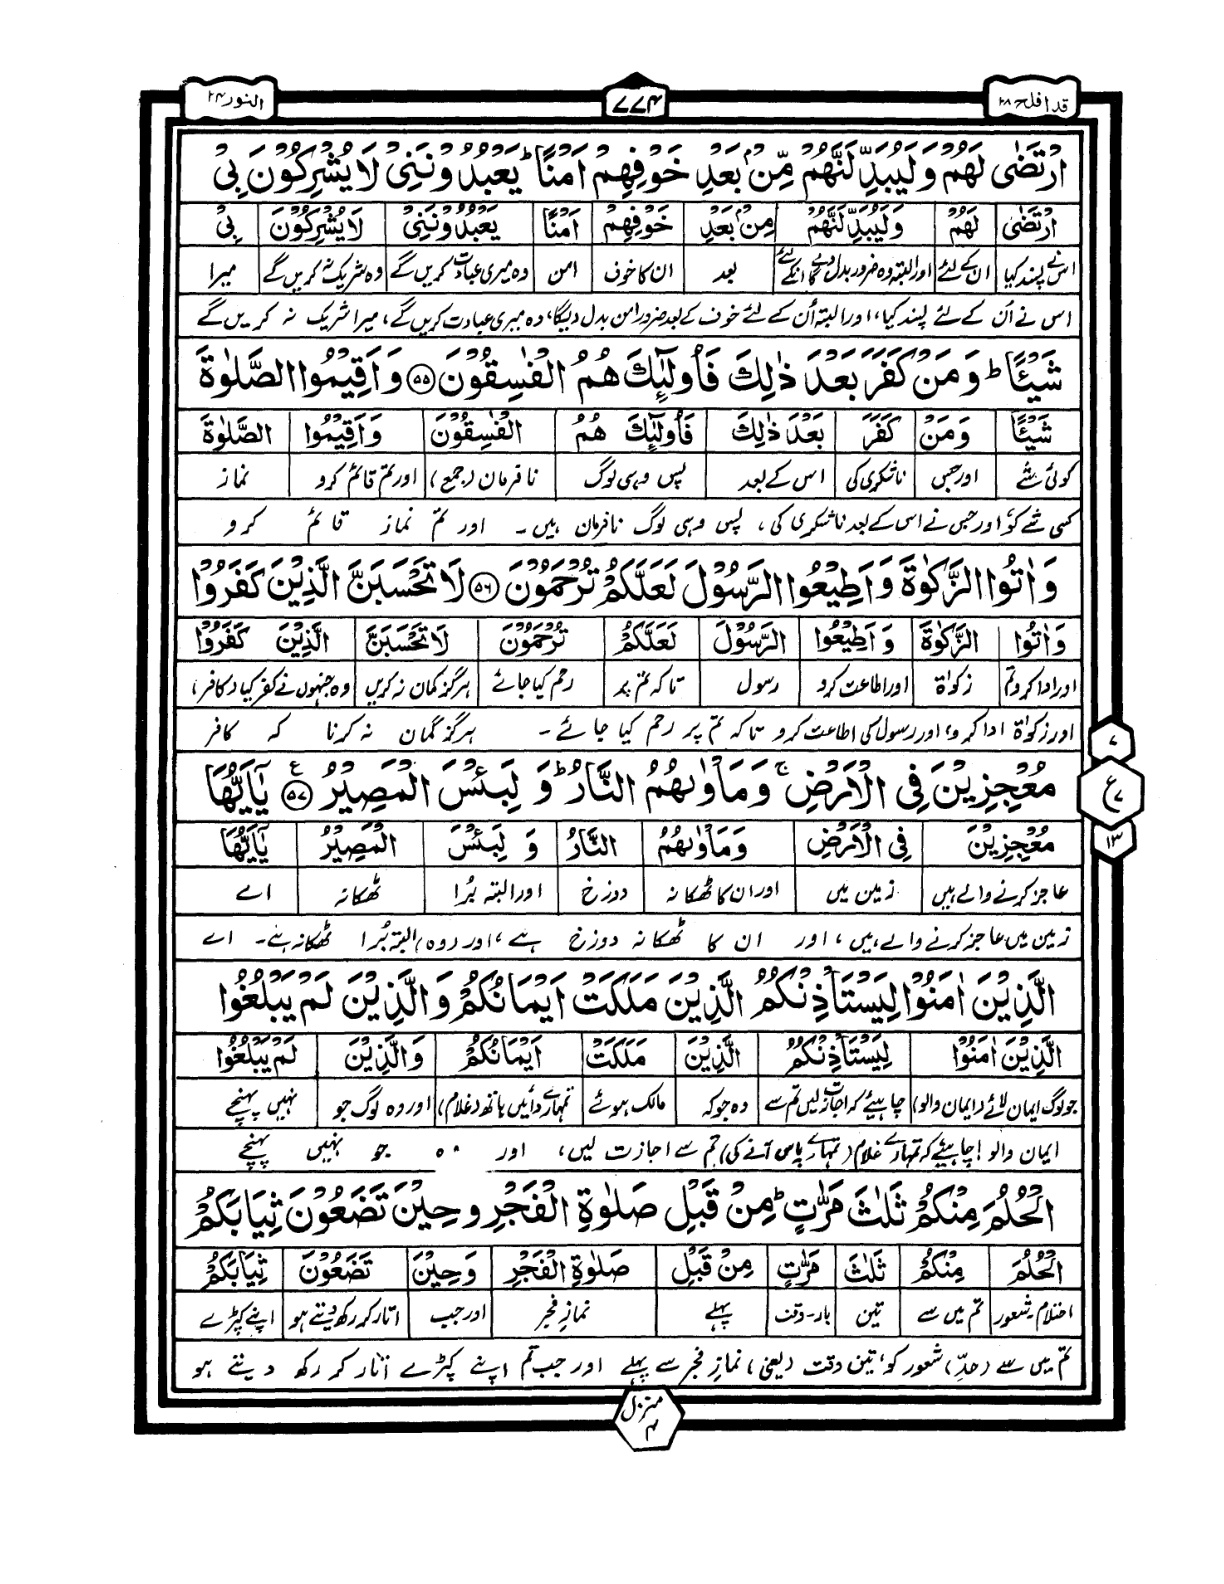 قد افلح ۱۸
۷۷۴
النور ۲۴
ارْتَضٰى لَهُمْ وَلَيُبَدِّلَنَّهُمْ مِّنْۢ بَعْدِ خَوْفِهِمْ اَمْنًا ؕ يَعْبُدُوْنَنِىْ لَا يُشْرِكُوْنَ بِىْ
ارْتَضٰى لَهُمْ وَلَيُبَدِّلَنَّهُمْ مِنْۢ بَعْدِ خَوْفِهِمْ اَمْنًا يَعْبُدُوْنَنِىْ لَا يُشْرِكُوْنَ بِىْ
اس نے پسند کیا ان کے لئے اور البتہ وہ ضرور بدل دے گا انکے لئے بعد ان کا خوف امن وہ میری عبادت کریں گے وہ شریک نہ کریں گے میرا
اس نے اُن کے لئے پسند کیا، اور البتہ اُن کے لئے خوف کے بعد ضرور امن بدل دیگا، وہ میری عبادت کریں گے، میرا شریک نہ کریں گے
شَيْـًٔا ؕ وَمَنْ كَفَرَ بَعْدَ ذٰلِكَ فَاُولٰٓئِكَ هُمُ الْفٰسِقُوْنَ ۵۵ وَاَقِيْمُوا الصَّلٰوةَ
شَيْـًٔا وَمَنْ كَفَرَ بَعْدَ ذٰلِكَ فَاُولٰٓئِكَ هُمُ الْفٰسِقُوْنَ وَاَقِيْمُوا الصَّلٰوةَ
کوئی شے اور جس ناشکری کی اس کے بعد پس وہی لوگ نافرمان (جمع) اور تم قائم کرو نماز
کسی شے کو، اور جس نے اس کے بعد ناشکری کی، پس وہی لوگ نافرمان ہیں۔ اور تم نماز قائم کرو
وَاٰتُوا الزَّكٰوةَ وَاَطِيْعُوا الرَّسُوْلَ لَعَلَّكُمْ تُرْحَمُوْنَ ۵۶ لَا تَحْسَبَنَّ الَّذِيْنَ كَفَرُوْا
وَاٰتُوا الزَّكٰوةَ وَاَطِيْعُوا الرَّسُوْلَ لَعَلَّكُمْ تُرْحَمُوْنَ لَا تَحْسَبَنَّ الَّذِيْنَ كَفَرُوْا
اور ادا کرو تم زکوٰۃ اور اطاعت کرو رسول تاکہ تم پر رحم کیا جائے ہرگز گمان نہ کریں وہ جنہوں نے کفر کیا (کافر)
اور زکوٰۃ ادا کرو، اور رسول کی اطاعت کرو تاکہ تم پر رحم کیا جائے۔ ہرگز گمان نہ کرنا کہ کافر
۷
مُعْجِزِيْنَ فِى الْاَرْضِ ۚ وَمَاْوٰىهُمُ النَّارُ ؕ وَلَبِئْسَ الْمَصِيْرُ ۵۷ ع يٰٓاَيُّهَا
ع ۷
مُعْجِزِيْنَ فِى الْاَرْضِ وَمَاْوٰىهُمُ النَّارُ وَ لَبِئْسَ الْمَصِيْرُ يٰٓاَيُّهَا
۱۳
عاجز کرنے والے ہیں زمین میں اور ان کا ٹھکانہ دوزخ اور البتہ بُرا ٹھکانہ اے
زمین میں عاجز کرنے والے ہیں، اور ان کا ٹھکانہ دوزخ ہے، اور (وہ) البتہ بُرا ٹھکانہ ہے۔ اے
الَّذِيْنَ اٰمَنُوْا لِيَسْتَاْذِنْكُمُ الَّذِيْنَ مَلَكَتْ اَيْمَانُكُمْ وَالَّذِيْنَ لَمْ يَبْلُغُوا
الَّذِيْنَ اٰمَنُوْا لِيَسْتَاْذِنْكُمُ الَّذِيْنَ مَلَكَتْ اَيْمَانُكُمْ وَالَّذِيْنَ لَمْ يَبْلُغُوا
جو لوگ ایمان لائے (ایمان والو) چاہیئے کہ اجازت لیں تم سے وہ جو کہ مالک ہوئے تمہارے دائیں ہاتھ (غلام) اور وہ لوگ جو نہیں پہنچے
ایمان والو! چاہیئے کہ تمہارے غلام (تمہارے پاس آنے کی) تم سے اجازت لیں، اور جو نہیں پہنچے
الْحُلُمَ مِنْكُمْ ثَلٰثَ مَرّٰتٍ ؕ مِنْ قَبْلِ صَلٰوةِ الْفَجْرِ وَحِيْنَ تَضَعُوْنَ ثِيَابَكُمْ
الْحُلُمَ مِنْكُمْ ثَلٰثَ مَرّٰتٍ مِنْ قَبْلِ صَلٰوةِ الْفَجْرِ وَحِيْنَ تَضَعُوْنَ ثِيَابَكُمْ
احتلام شعور تم میں سے تین بار۔وقت پہلے نمازِ فجر اور جب اتار کر رکھ دیتے ہو اپنے کپڑے
تم میں سے (حدِّ) شعور کو، تین وقت (یعنی) نمازِ فجر سے پہلے اور جب تم اپنے کپڑے اتار کر رکھ دیتے ہو
منزل ۴